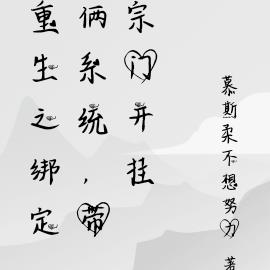 重生之绑定
俩系统，带
宗门开挂
慕斯柔不想努力 著